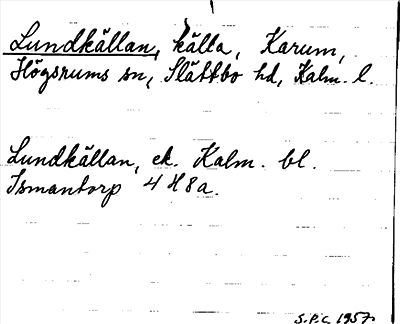 Lundkällan, källa, Karum,
Högsrums sn, Slättbo hd, Kalm. l.
Lundkällan, ek. Kalm. bl.
Ismantorp 4 H 8 a.
S.P.C. 1957